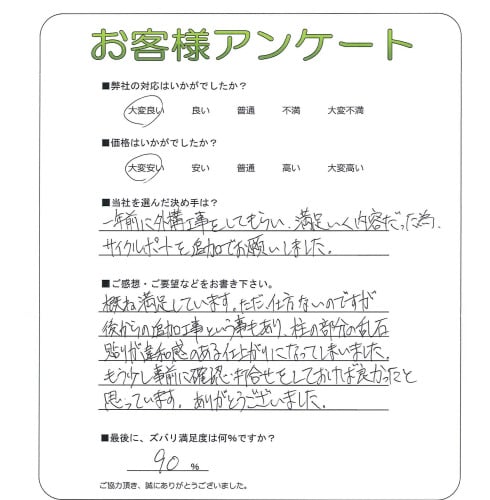 お客様アンケート
■弊社の対応はいかがでしたか?
大変良い 良い 普通 不満 大変不満
■価格はいかがでしたか?
大変安い 安い 普通 高い 大変高い
■当社を選んだ決め手は?
一年前に外構工事をしてもらい、満足いく内容だった為、
サイクルポートを追加でお願いしました。
■ご感想・ご要望などをお書き下さい。
概ね満足しています。ただ、仕方ないのですが
後からの追加工事という事もあり、柱の部分の乱石
貼りが違和感のある仕上がりになってしまいました。
もう少し事前に確認・打合せをしておけば良かったと
思っています。ありがとうございました。
■最後に、ズバリ満足度は何%ですか?
90 %
ご協力頂き、誠にありがとうございました。